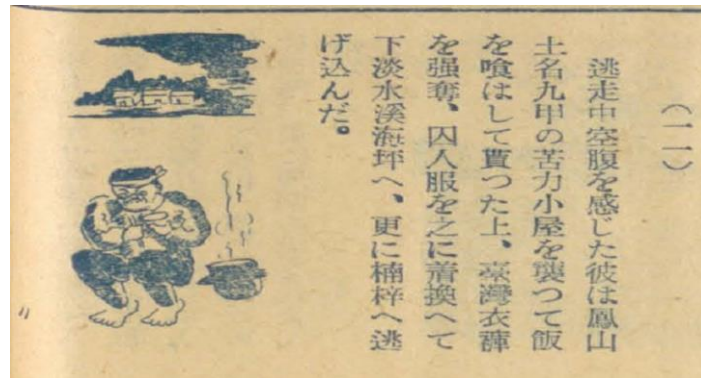 （一一）
逃走中空腹を感じた彼は鳳山
土名九甲の苦力小屋を襲つて飯
を喰はして貰つた上、臺灣衣褲
を强奪、囚人服を之に着換へて
下淡水溪海坪へ、更に楠梓へ逃
げ込んだ。